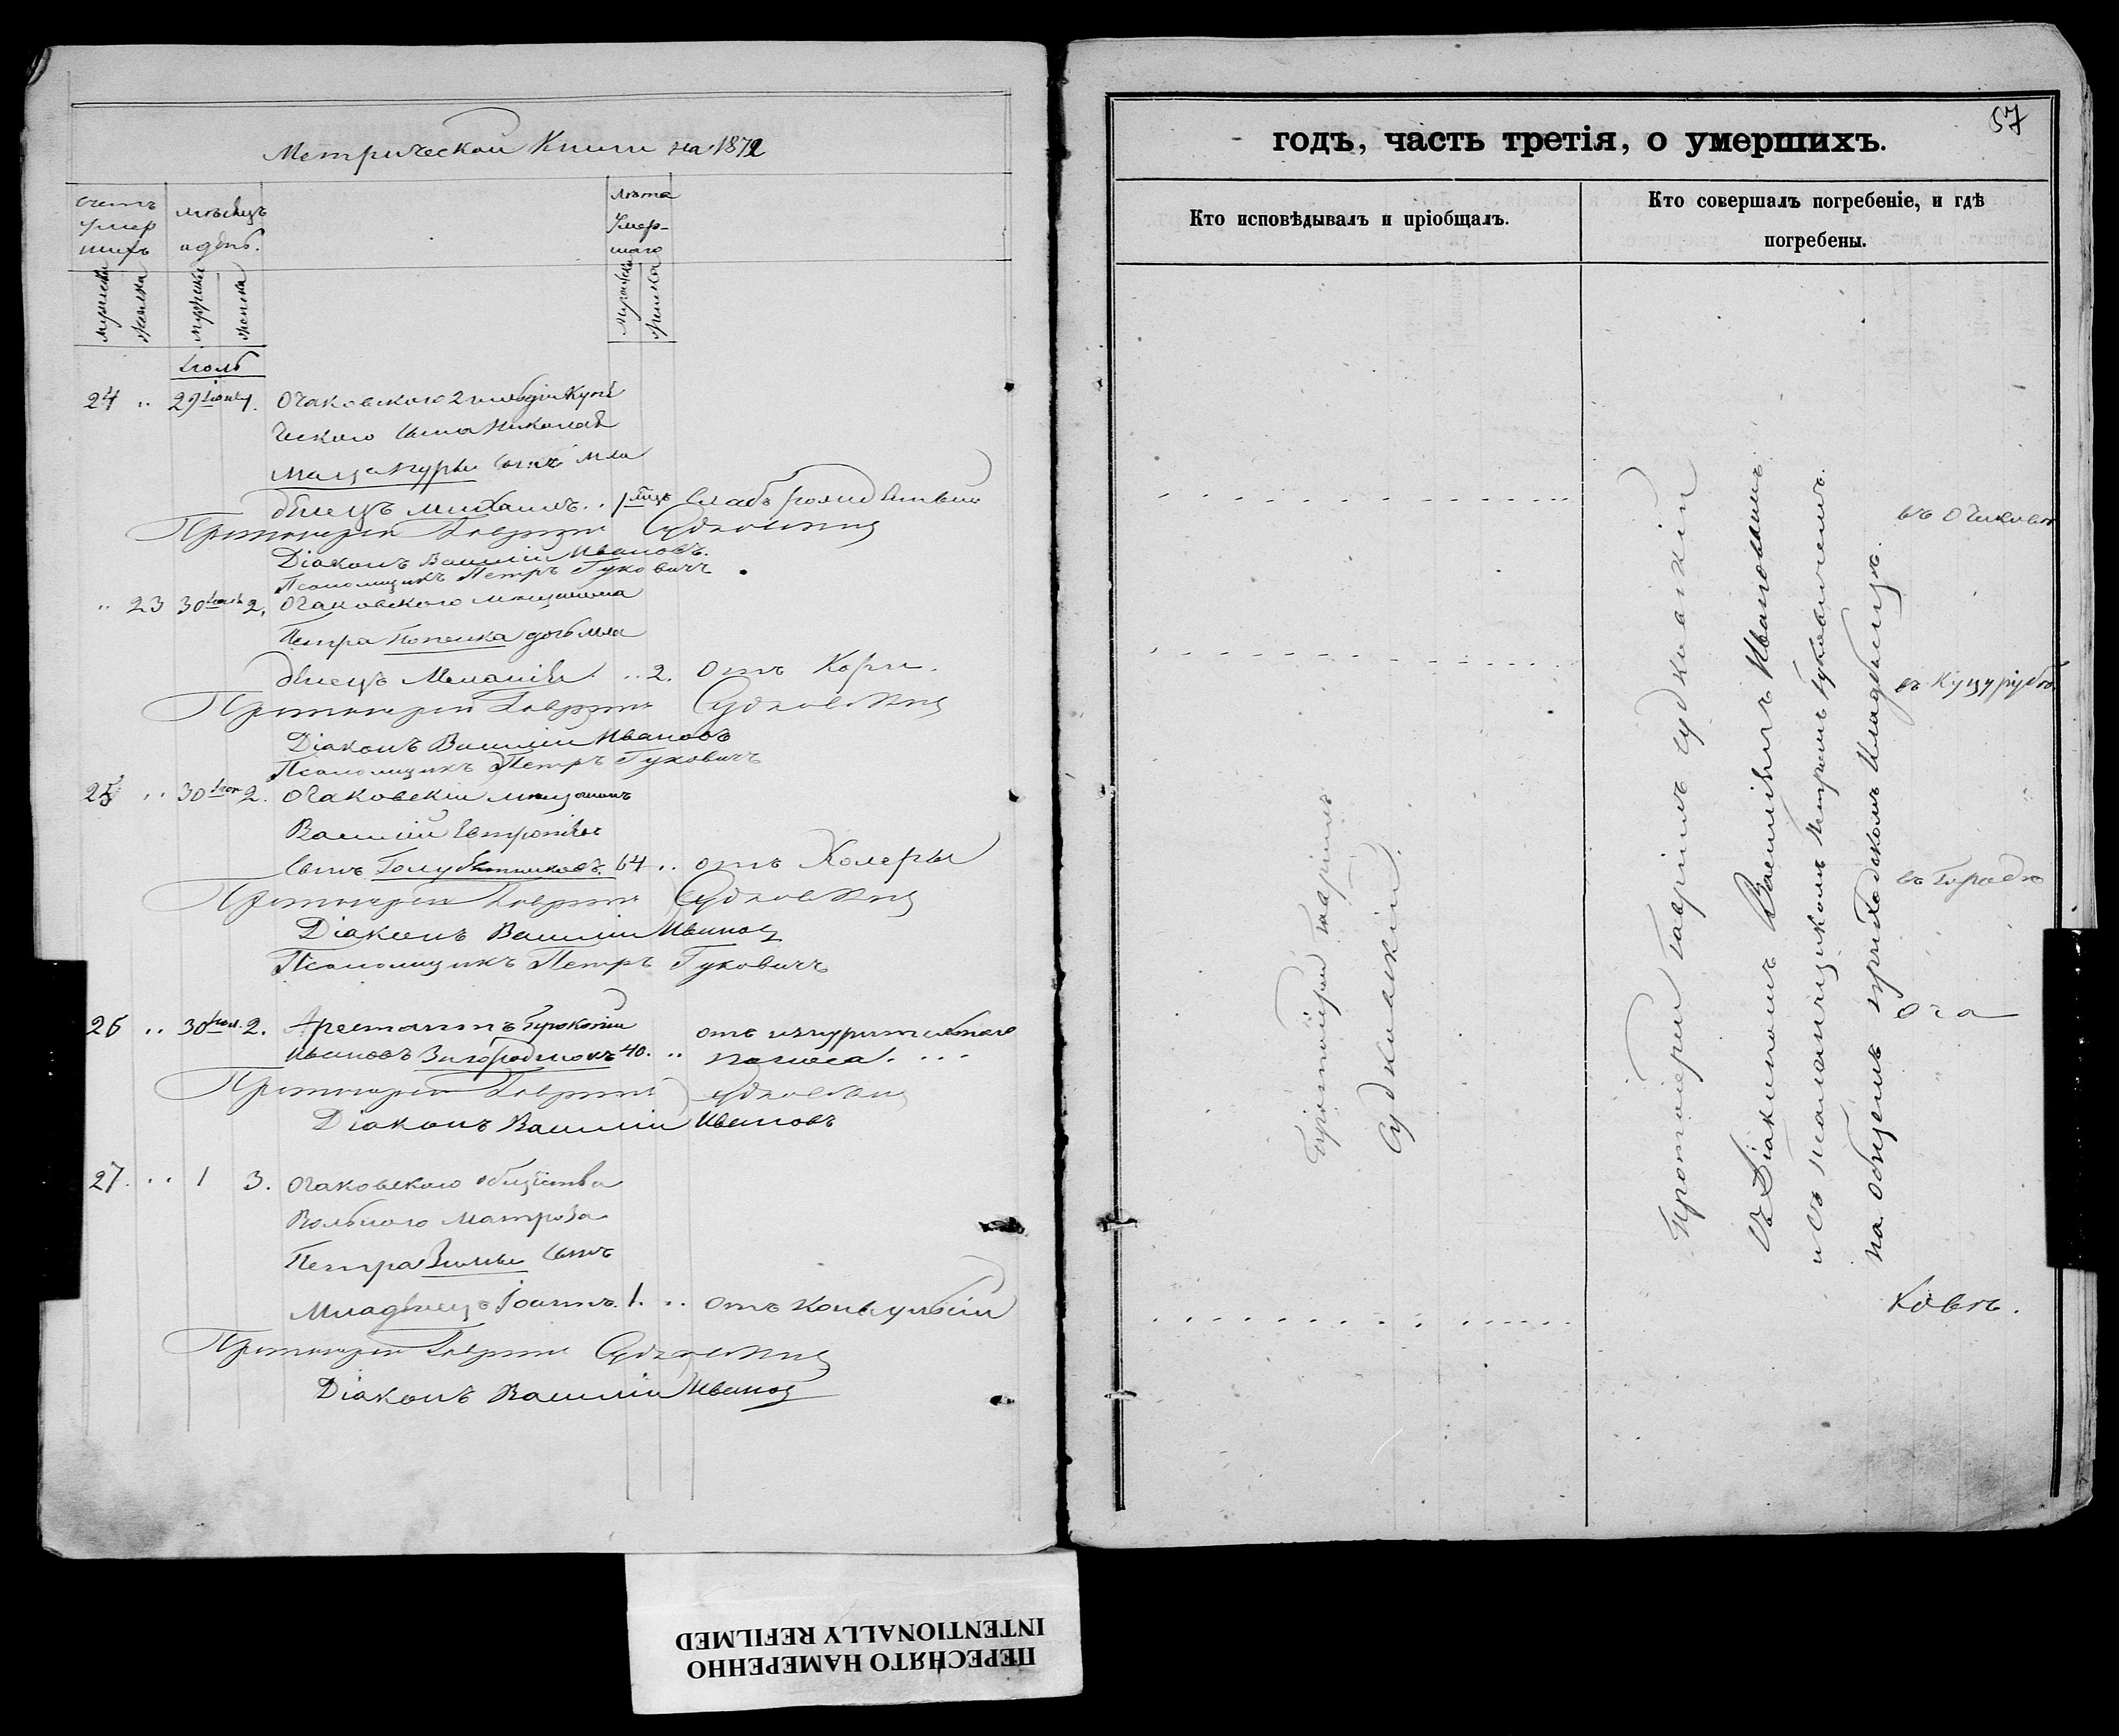 Метрической Книги на 1872
счетъ умер шихъ
мѣсяцъ и день.
лѣта Умер- шаго
мужеска
женска
мужеска
женска
мужеска
женска
Іюль
24 .. 29 Іюня 1. Очаковского 2 гильдіи Купе
ческого сына Николая
Мацакуры сынъ мла
дѣнецъ Михаилъ .. 1 мѣс. Слабъ рожденіемъ
Протоіерей Гавріилъ Судковскій
Діаконъ Василій Ивановъ.
Псаломщикъ Петръ Гуковичъ
.. 23 30 Іюня 2. Очаковского мещанина
Петра Попенка дочь мла
дѣнецъ Меланія .. 2. отъ Кори.
Протоіерей Гавріилъ Судковскій
Діаконъ Василій Ивановъ
Псаломщикъ Петръ Гуковичъ
25 .. 30 Іюн 2. Очаковскій мещанинъ
Василій Евтропіевъ
сынъ Голубятниковъ. 64 .. отъ Холеры
Протоіерей Гавріилъ Судковскій
Діаконъ Василій Ивановъ
Псаломщикъ Петръ Гуковичъ
26 .. 30 Іюн. 2. Арестантъ Прокопій отъ изнурительнаго
Ивановъ Загороднюкъ 40. .. поноса. . . .
Протоіерей Гавріилъ Судковскій
Діаконъ Василій Ивановъ
27. .. 1 3. Очаковского общества
Вольного Матроза
Петра Зимы сынъ
Младѣнецъ Іоаннъ. 1. .. отъ Конвульсіи
Протоіерей Гавріилъ Судковскій
Діаконъ Василій Ивановъ
57
годъ, часть третія, о умершихъ.
Кто исповѣдывалъ и пріобщалъ.
Кто совершалъ погребеніе, и гдѣ
погребены.
Протоіерей Гавріилъ
Судковскій.
Протоіерей Гавріилъ Судковскій
съ Діакономъ Василіемъ Ивановымъ
и съ псаломщикомъ Петромъ Гуковичемъ.
на общемъ приходскомъ кладбищѣ.
въ Очаковѣ
въ Куцурубѣ
въ Городѣ
Оча
ковѣ.
ПЕРЕСНЯТО НАМЕРЕННО
INTENTIONALLY REFILMED